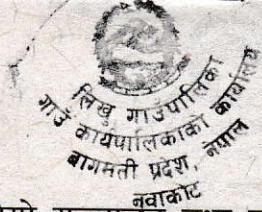 लिखु गाउँपालिका
गाउँ कार्यपालिकाको कार्यालय
बागमती प्रदेश, नेपाल
नवाकोट